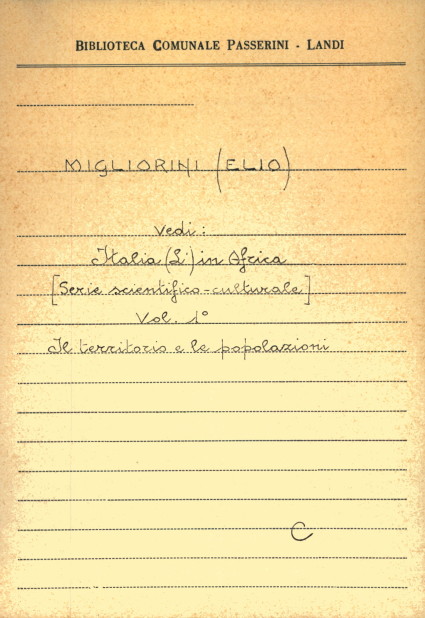 BIBLIOTECA COMUNALE PASSERINI - LANDI
MIGLIORINI (ELIO)
Vedi:
Italia (L') in Africa
[Serie scientifico-culturale]
Vol. 1°
Il territorio e le popolazioni
C